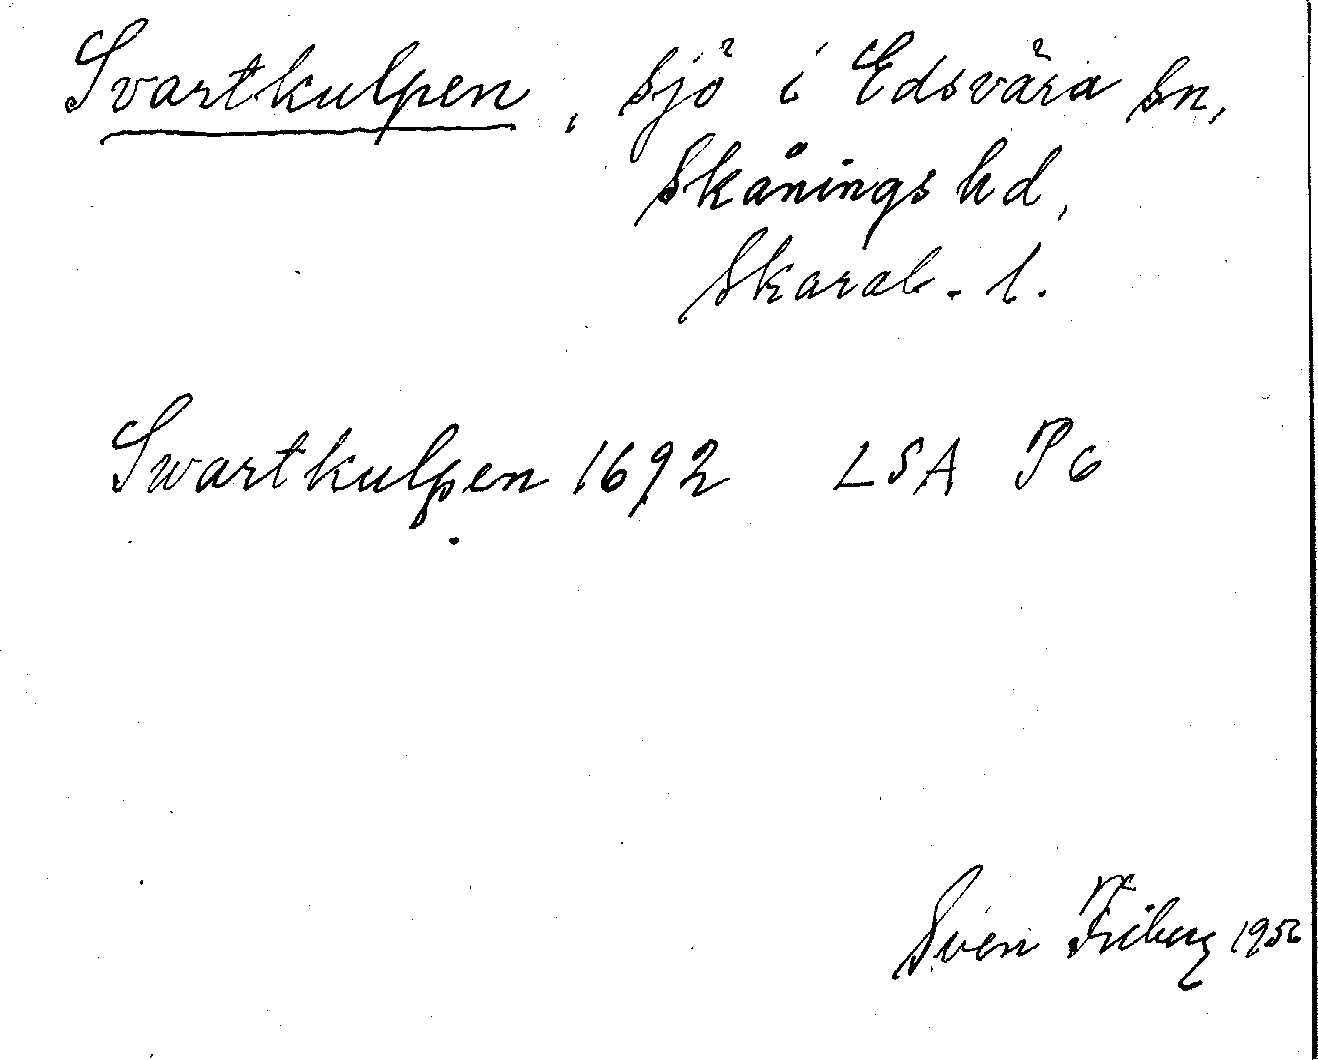 Svartkulpen, sjö i Edsvära sn,
Skånings hd,
Skarab. l.
Swartkulpen 1692 LSA P6
Sven Friberg